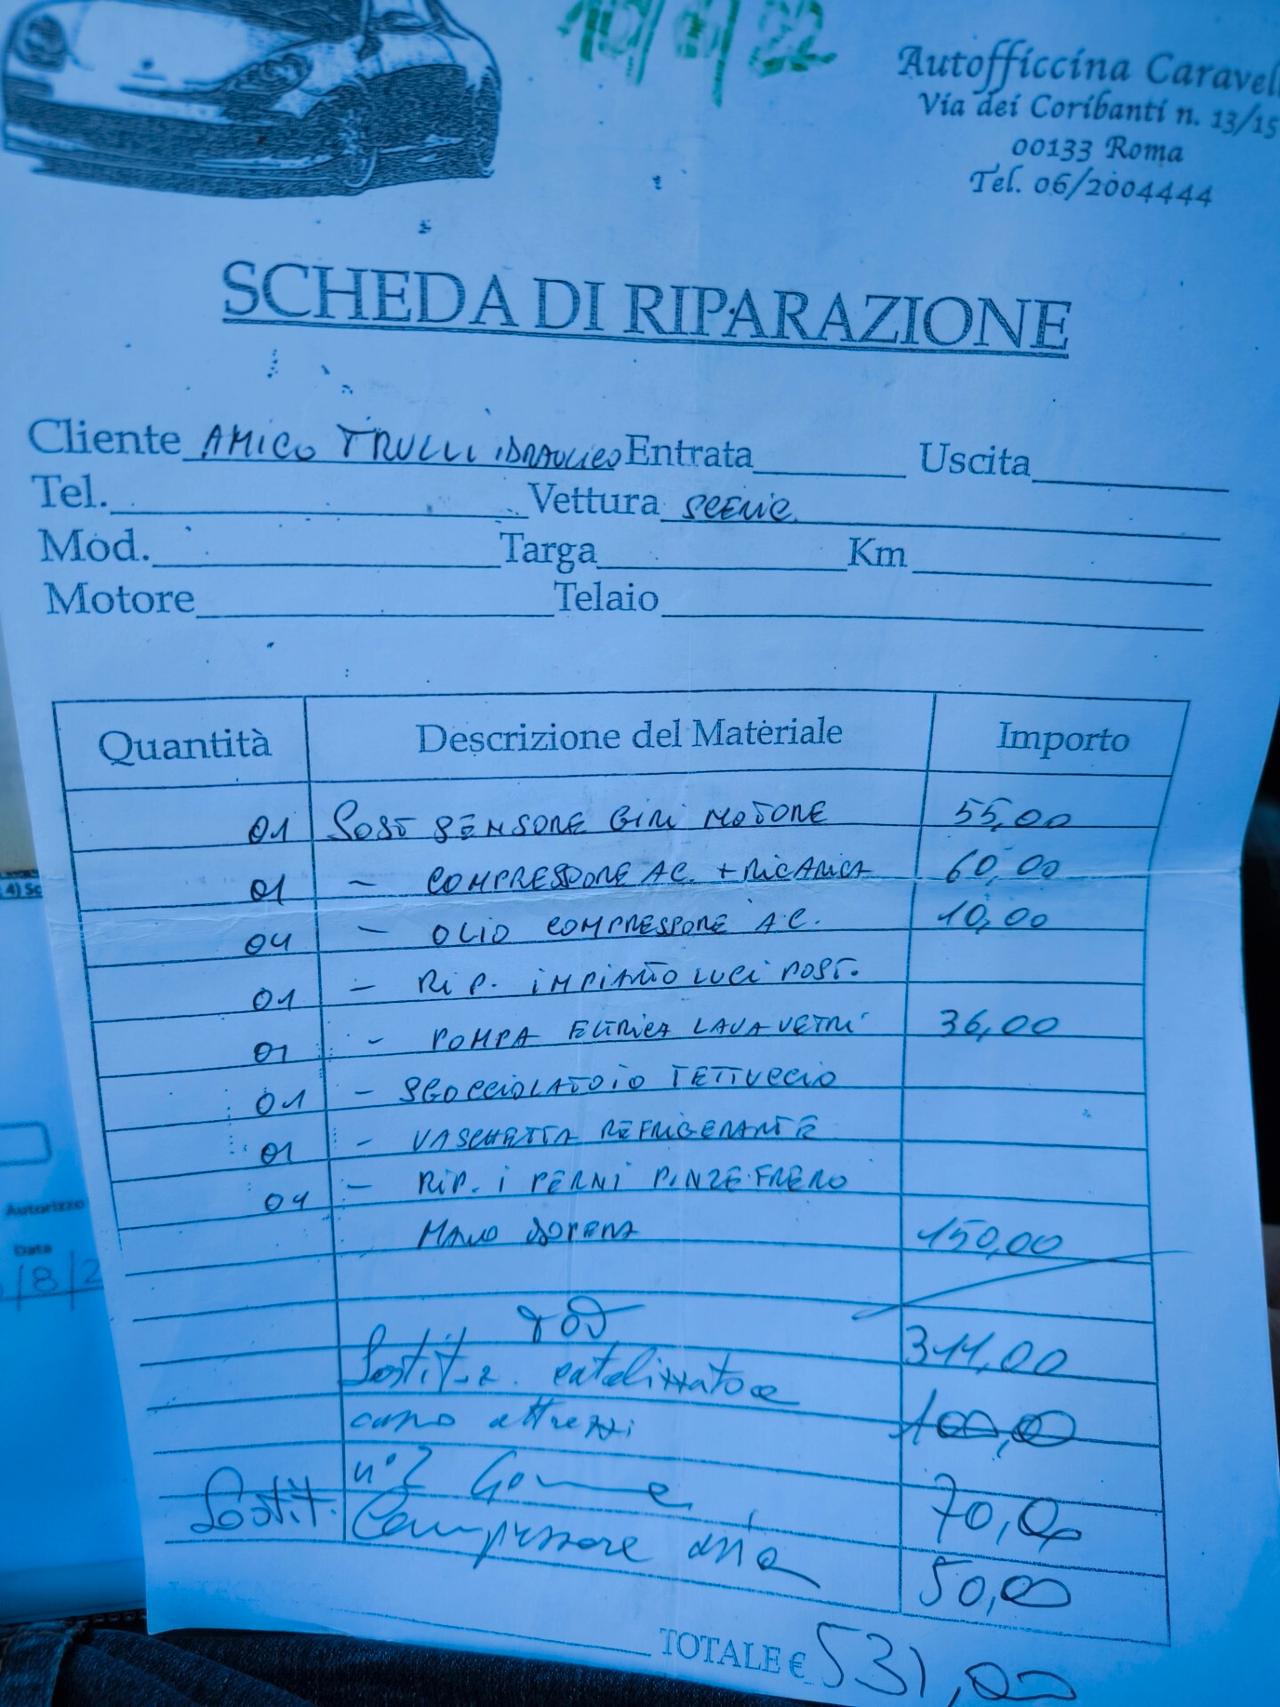 10/8/22
Autofficcina Caravel
Via dei Coribanti n. 13/15
00133 Roma
Tel. 06/2004444
SCHEDA DI RIPARAZIONE
Cliente AMICO TRULLI IDRAULICO Entrata Uscita
Tel. Vettura SCENIC
Mod. Targa Km
Motore Telaio
Quantità Descrizione del Materiale Importo
01 SOST SENSORE GIRI MOTORE 55,00
01 - COMPRESSORE AC. + RICARICA 60,00
04 - OLIO COMPRESSORE A.C. 10,00
01 - RIP. IMPIANTO LUCI POST.
01 - POMPA ELTRICA LAVAVETRI 36,00
01 - SGOCCIOLATOIO TETTUCCIO
01 - VASCHETTA REFRIGERANTE
04 - RIP. I PERNI PINZE FRENO
MANO DOPERA 150,00
TOT 311,00
Sostit. catalizzatore
cano attrezzi 100,00
n°2 Gomme 70,00
Sostit. Compressore aria 50,00
TOTALE € 531,00
4) Sc
Autorizzo
Data
/8/2